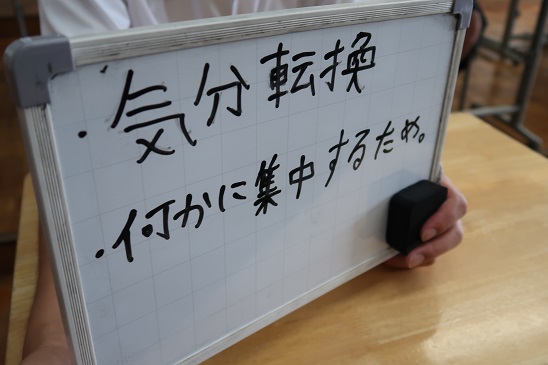 ・気分転換
・何かに集中するため。